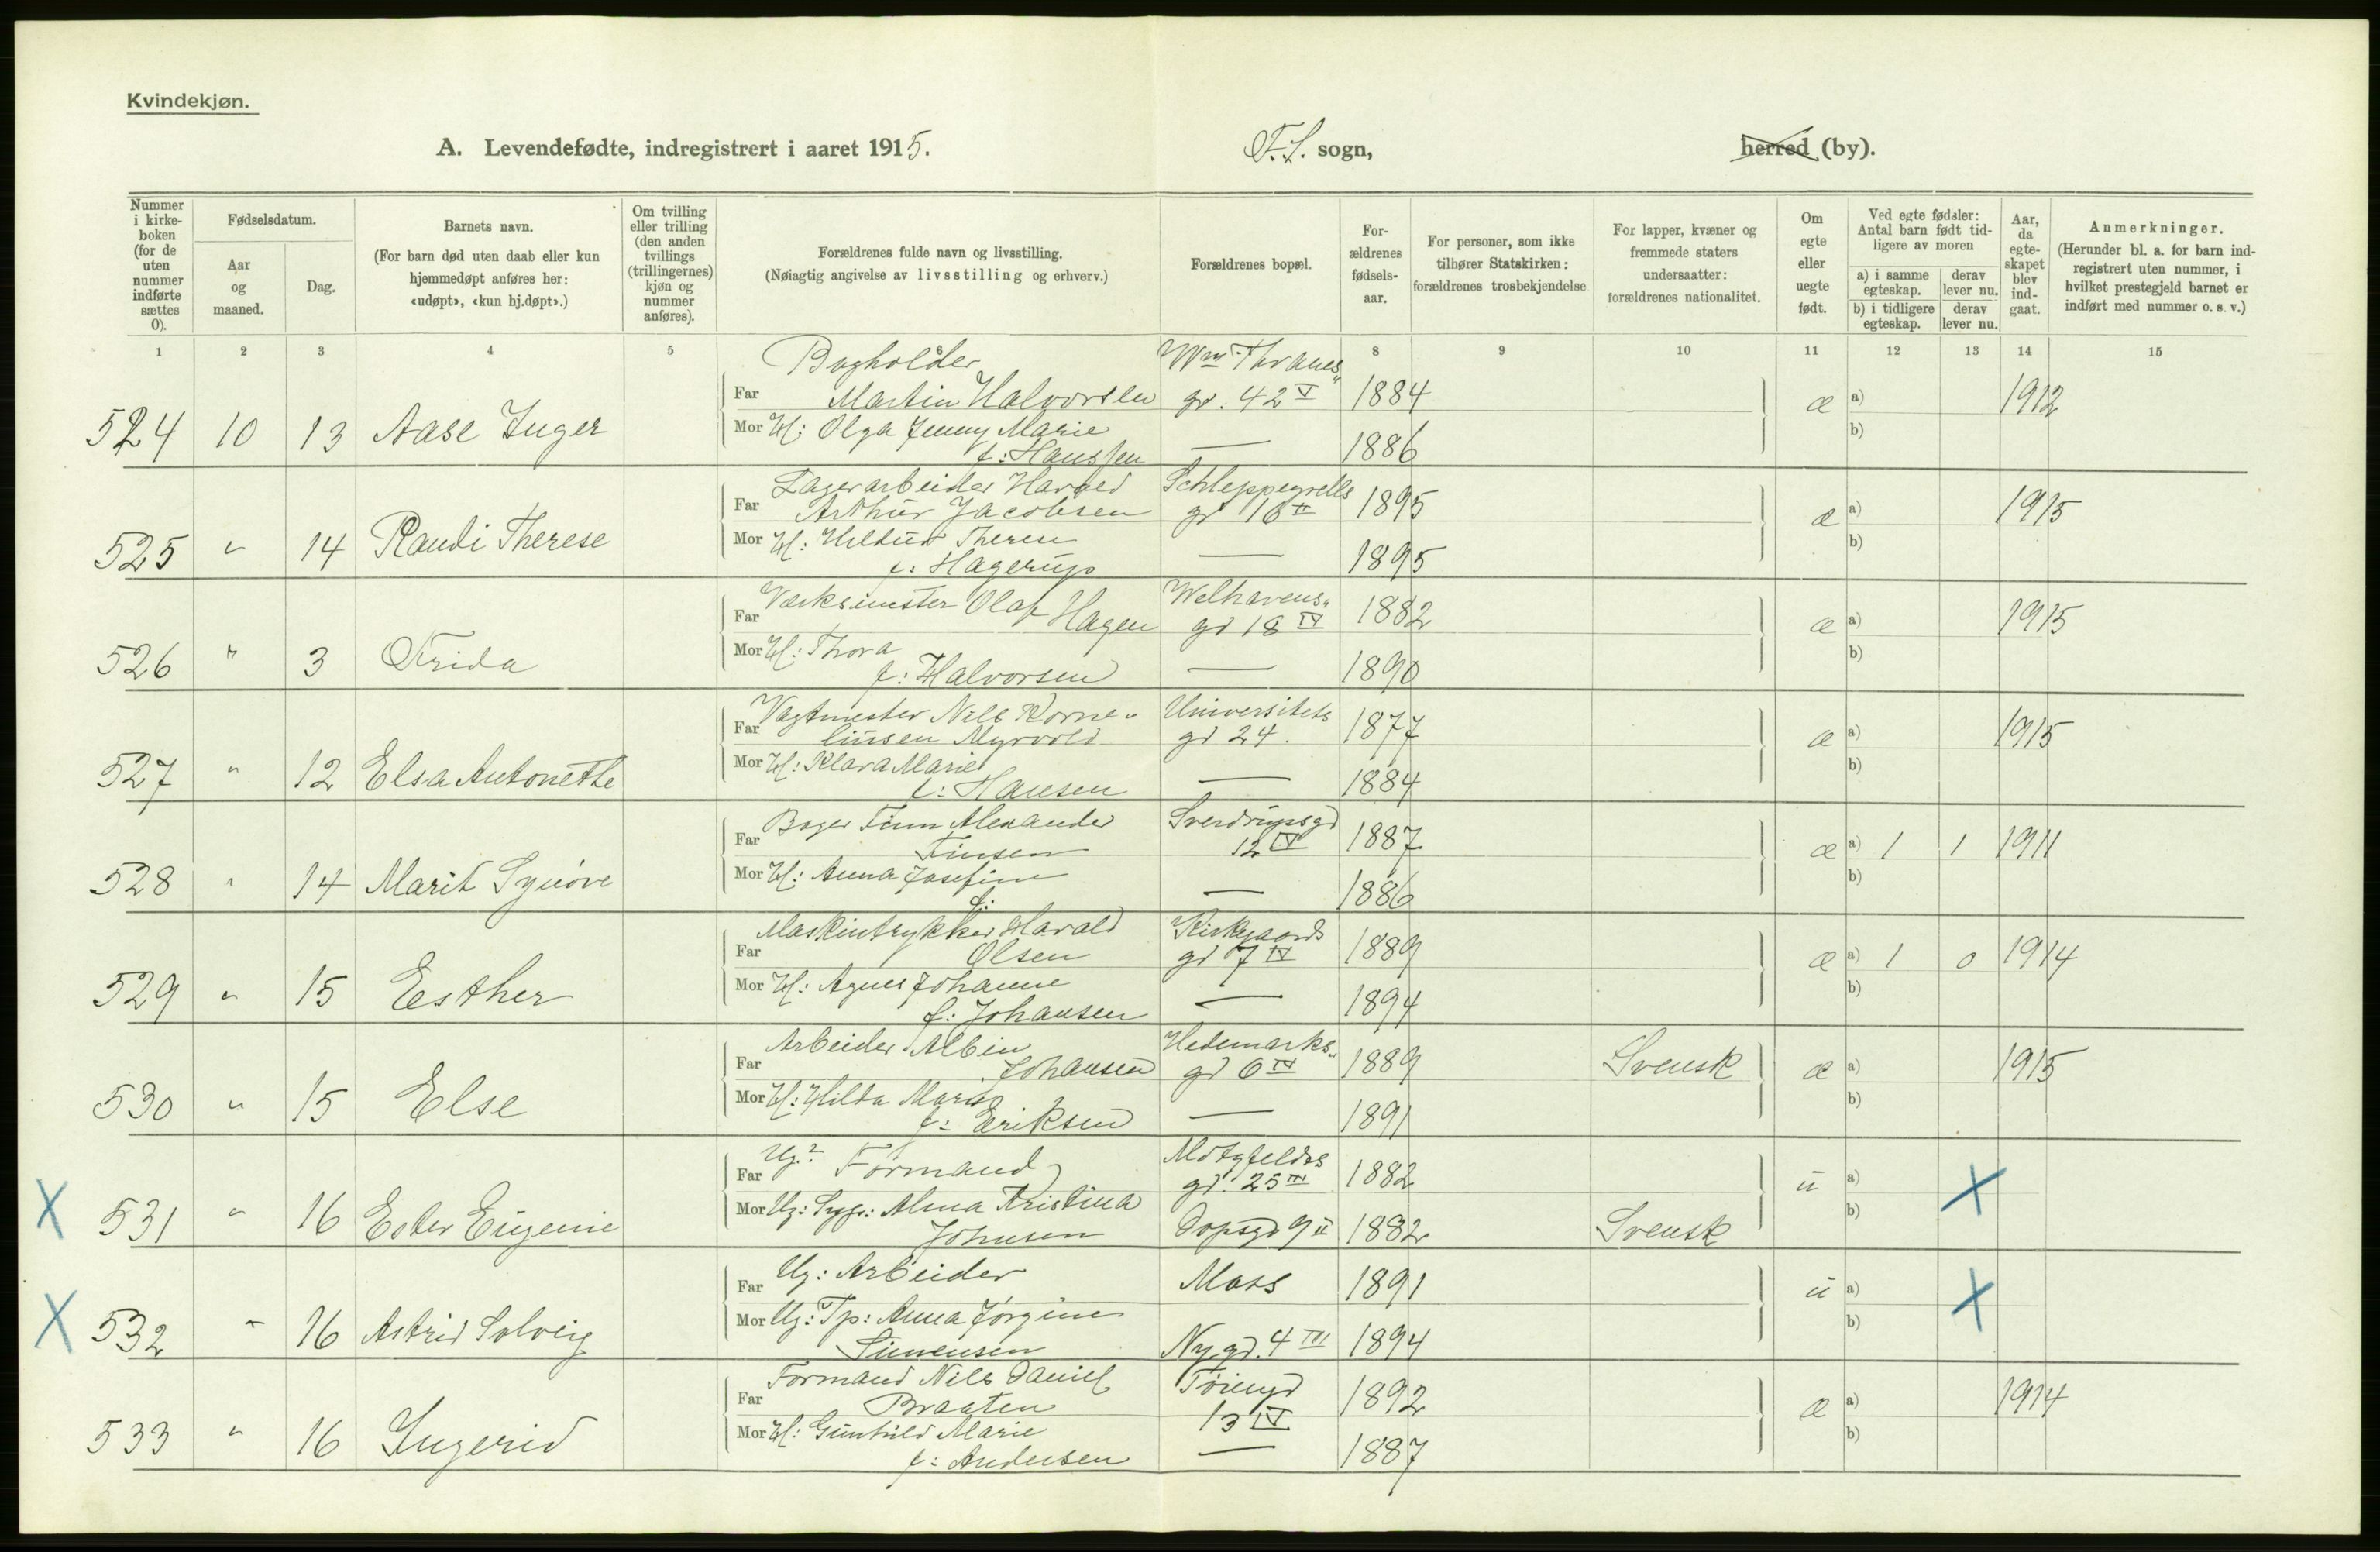 Kvindekjøn.
A. Levendefødte, indregistrert i aaret 1915.
F. S. sogn,
herred (by).
Nummer i kirkeboken (for de uten nummer indførte sættes 0).
Fødselsdatum.
Aar og maaned.
Dag.
Barnets navn.
(For barn død uten daab eller kun hjemmedøpt anføres her: «udøpt», «kun hj.døpt».)
Om tvilling eller trilling (den anden tvillings (trillingernes) kjøn og nummer anføres).
Forældrenes fulde navn og livsstilling.
(Nøiagtig angivelse av livsstilling og erhverv.)
Forældrenes bopæl.
Forældrenes fødselsaar.
For personer, som ikke tilhører Statskirken: forældrenes trosbekjendelse
For lapper, kvæner og fremmede staters undersaatter: forældrenes nationalitet.
Om egte eller uegte født.
Ved egte fødsler: Antal barn født tidligere av moren
a) i samme egteskap.
derav lever nu.
b) i tidligere egteskap.
derav lever nu.
Aar, da egteskapet blev indgaat.
Anmerkninger.
(Herunder bl. a. for barn indregistrert uten nummer, i hvilket prestegjeld barnet er indført med nummer o. s. v.)
1 2 3 4 5 8 9 10 11 12 13 14 15
Bogholder Wm Thranes"
Far Martin Halvorsen gd. 42 V 1884 æ a) 1912
524 10 13 Aase Inger
Mor H: Olga Jenny Marie b)
f: Hanssen — 1886
Lagerarbeider Harald Schleppegrells
Far Arthur Jacobsen gd 16 II 1895 æ a) 1915
525 " 14 Randi Therese
Mor H: Hildur Therese b)
f: Hagerup — 1895
Værksmester Olaf Welhavens"
Far Hagen gd 18 IV 1882 æ a) 1915
526 " 3 Frida
Mor H: Thora b)
f: Halvorsen — 1890
Vagtmester Nils Korne" Universitets
Far liusen Myrvold gd 24. 1877 æ a) 1915
527 " 12 Elsa Antonette
Mor H: Klara Marie b)
f: Hansen — 1884
Bager Finn Alexander Sverdrupsgd
Far Finsen 12 IV 1887 æ a) 1 1 1911
528 " 14 Marit Synøve
Mor H: Anna Josefine b)
f: — 1886
Maskintrykker Harald Kirkegaards
Far Olsen gd 7 IV 1889 æ a) 1 0 1914
529 " 15 Esther
Mor H: Agnes Johanne b)
f: Johansen — 1894
Arbeider Albin Hedemarks"
Far Johansen gd 6 IV 1889 Svensk æ a) 1915
530 " 15 Else
Mor H: Hilda Maria b)
f: Eriksen — 1891
Ug? Formand Motzfeldts
Far gd. 25 III 1882 u a) X
X 531 " 16 Ester Eugenie
Mor Ug: Syge: Alma Kristina b)
Johnsen Dopsgd 9 II 1882 Svensk
Ug: Arbeider
Far Moss 1891 u a) X
X 532 " 16 Astrid Solveig
Mor Ug: Tp: Anna Jørgine b)
Simensen Nygd. 4 III 1894
Formand Nils Daniel Tøiengd
Far Braaten 13 IV 1892 æ a) 1914
533 " 16 Ingerid
Mor H: Gunhild Marie b)
f: Andersen — 1887